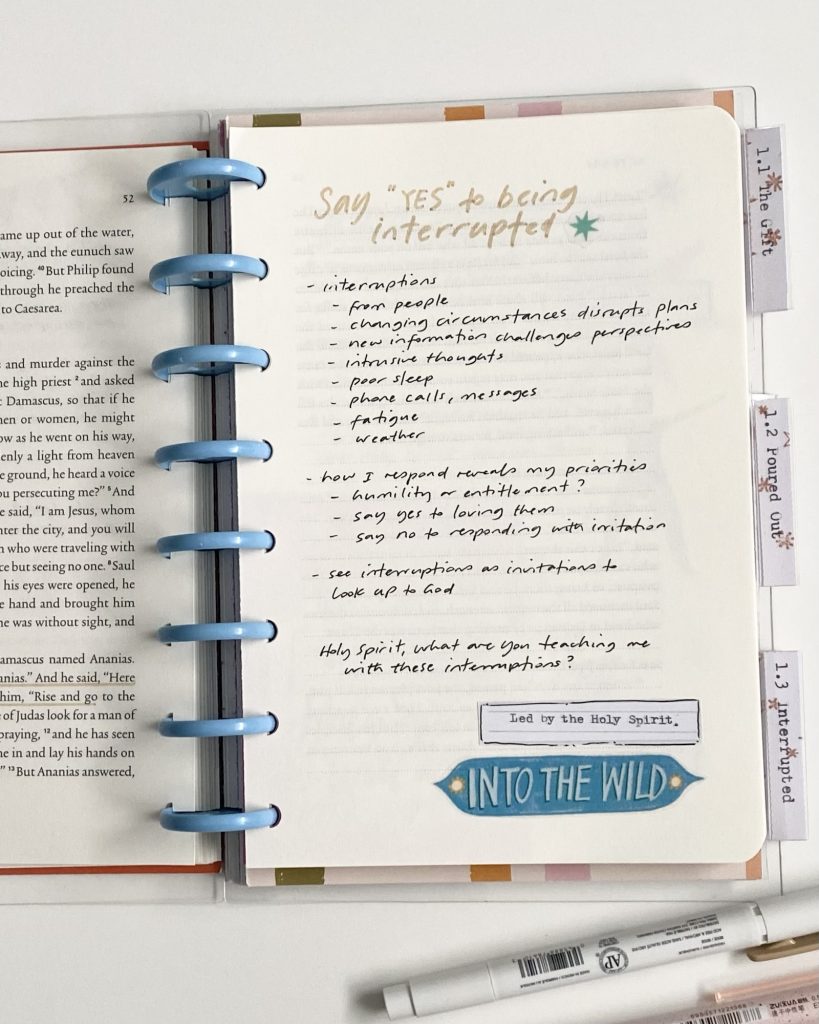 52
ame up out of the water,
way, and the eunuch saw
oicing. ⁴⁰But Philip found
through he preached the
to Caesarea.
s and murder against the
ne high priest ² and asked
t Damascus, so that if he
men or women, he might
ow as he went on his way,
enly a light from heaven
e ground, he heard a voice
ou persecuting me?" ⁵And
e said, "I am Jesus, whom
nter the city, and you will
n who were traveling with
ce but seeing no one. ⁸Saul
his eyes were opened, he
e hand and brought him
he was without sight, and
amascus named Ananias.
anias." And he said, "Here
him, "Rise and go to the
of Judas look for a man of
praying, ¹² and he has seen
me in and lay his hands on
" ¹³But Ananias answered,
Say "YES" to being
interrupted
- interruptions
- from people
- changing circumstances disrupts plans
- new information challenges perspectives
- intrusive thoughts
- poor sleep
- phone calls, messages
- fatigue
- weather
- how I respond reveals my priorities
- humility or entitlement?
- say yes to loving them
- say no to responding with irritation
- see interruptions as invitations to
look up to God
Holy Spirit, what are you teaching me
with these interruptions?
Led by the Holy Spirit.
INTO THE WILD
1.1 The Gift
1.2 Poured Out
1.3 Interrupted
AP